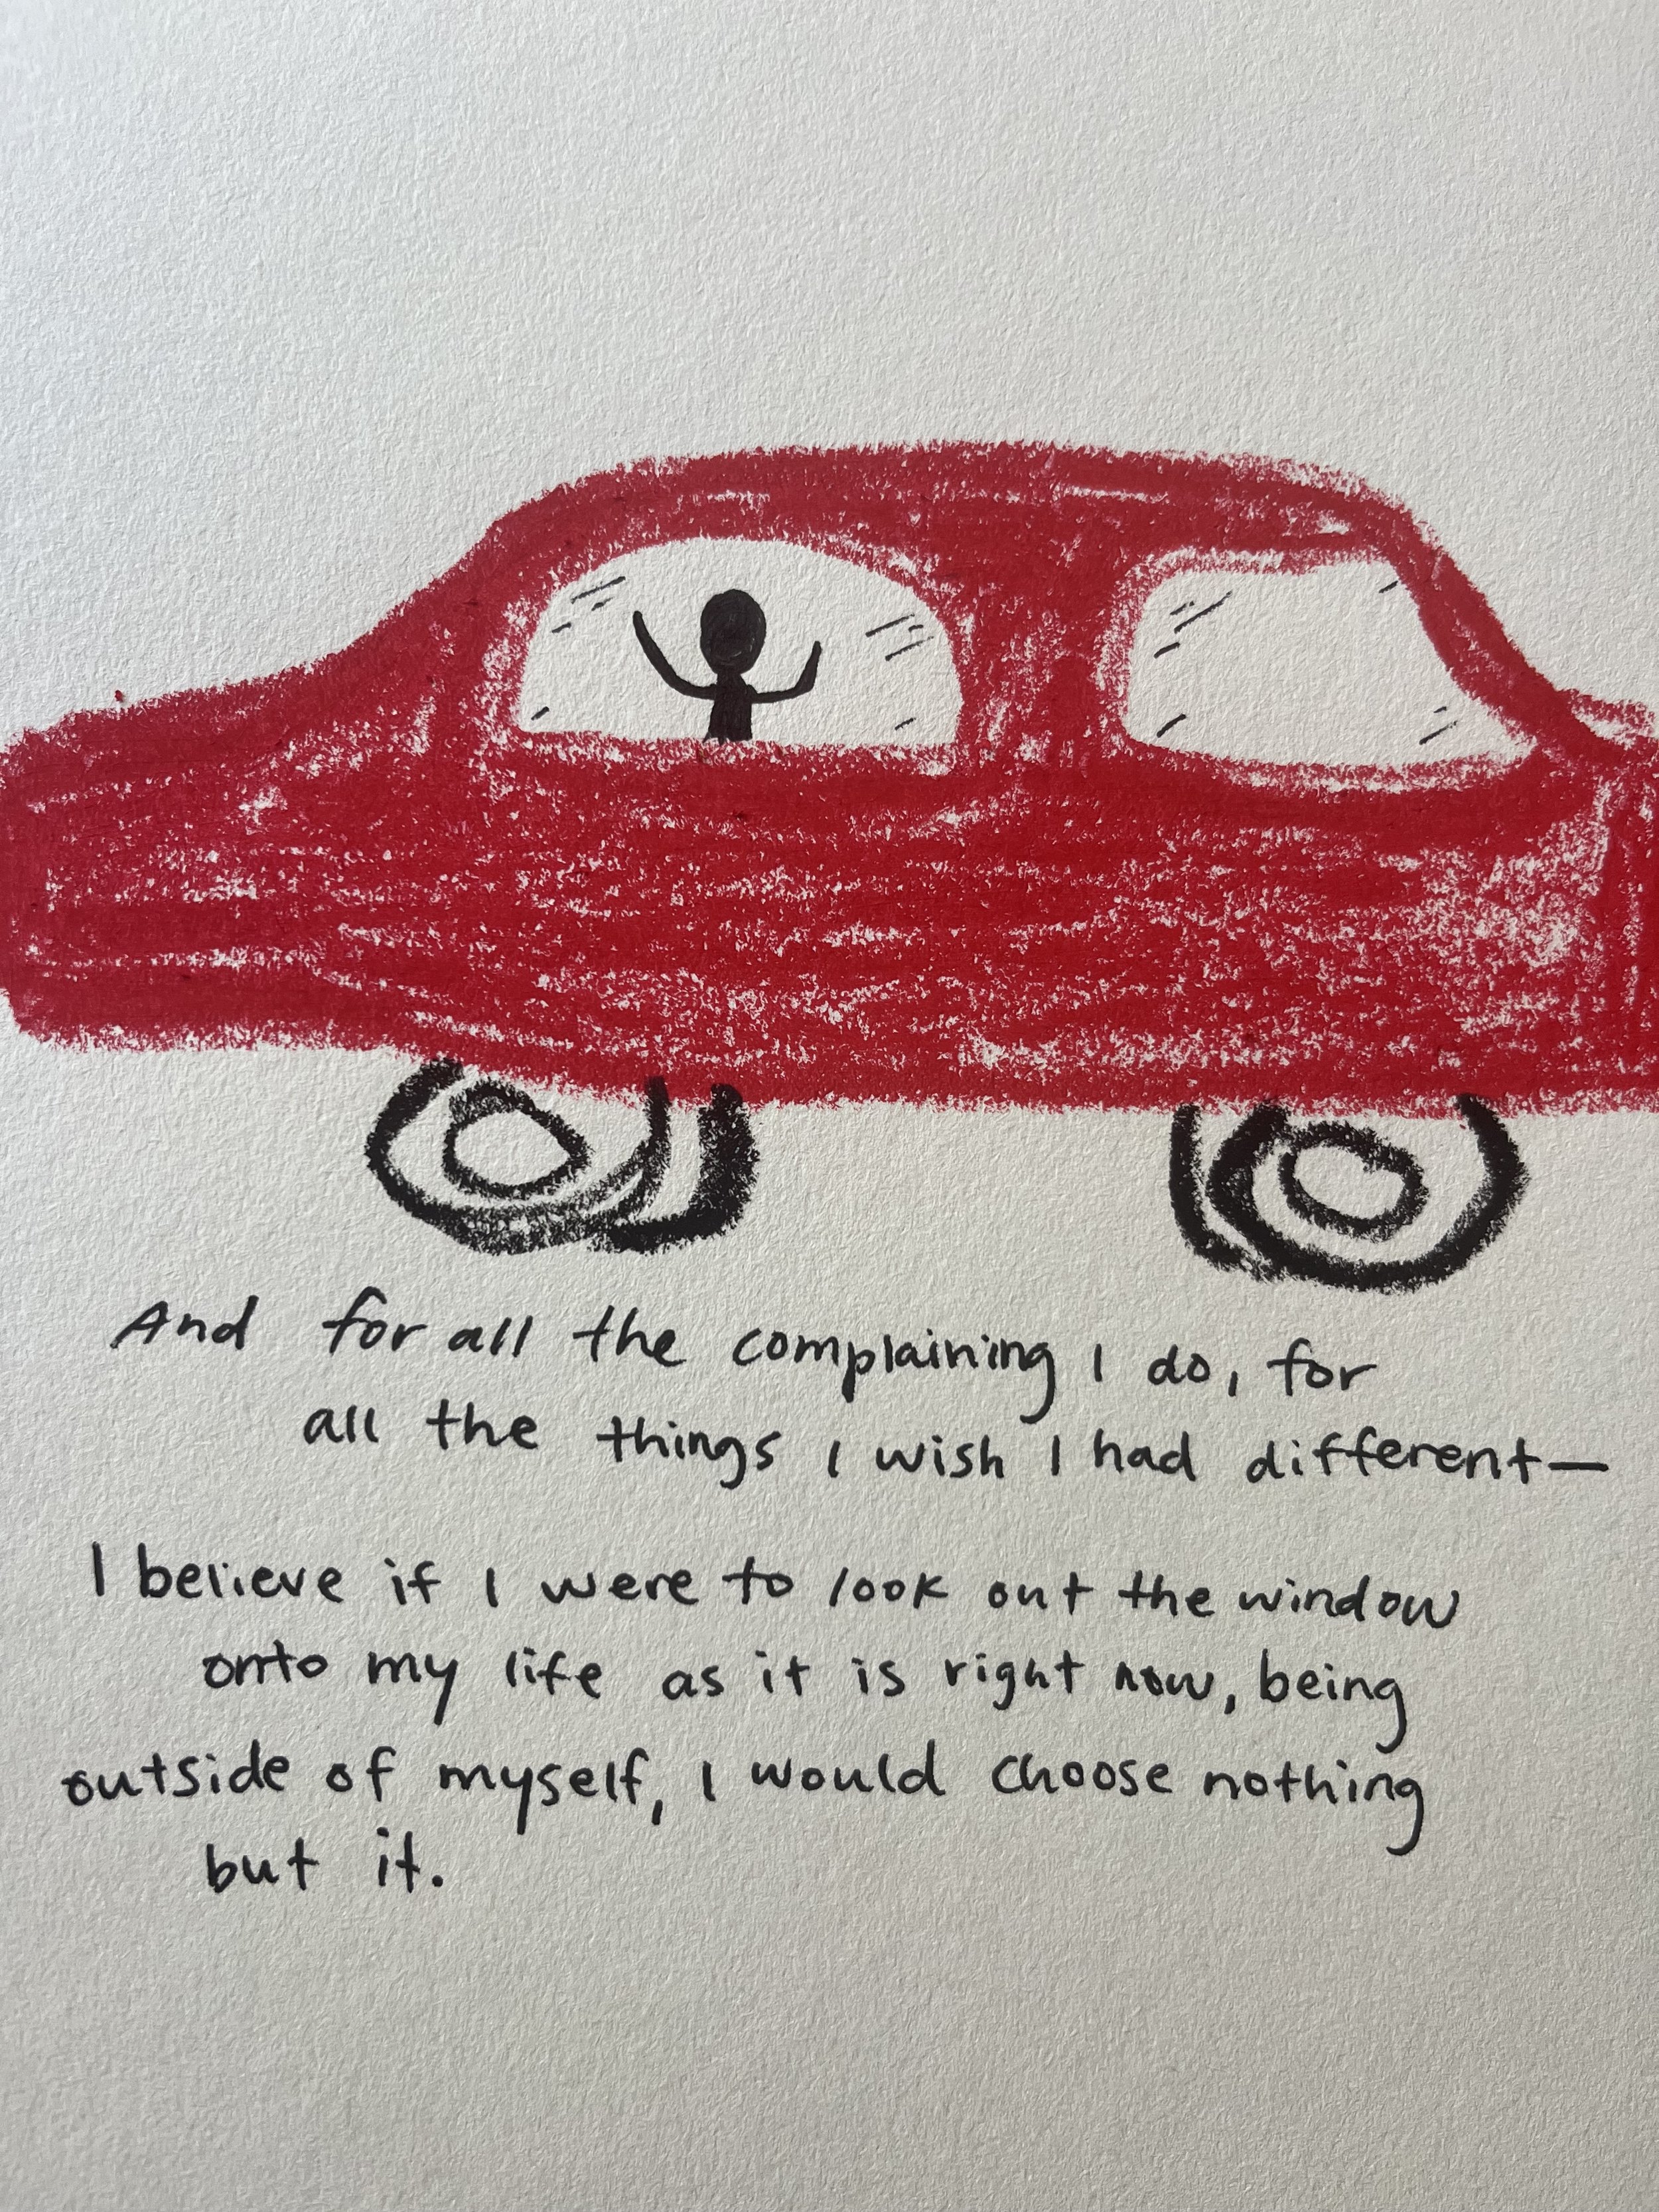 And for all the complaining I do, for
all the things I wish I had different—
I believe if I were to look out the window
onto my life as it is right now, being
outside of myself, I would choose nothing
but it.